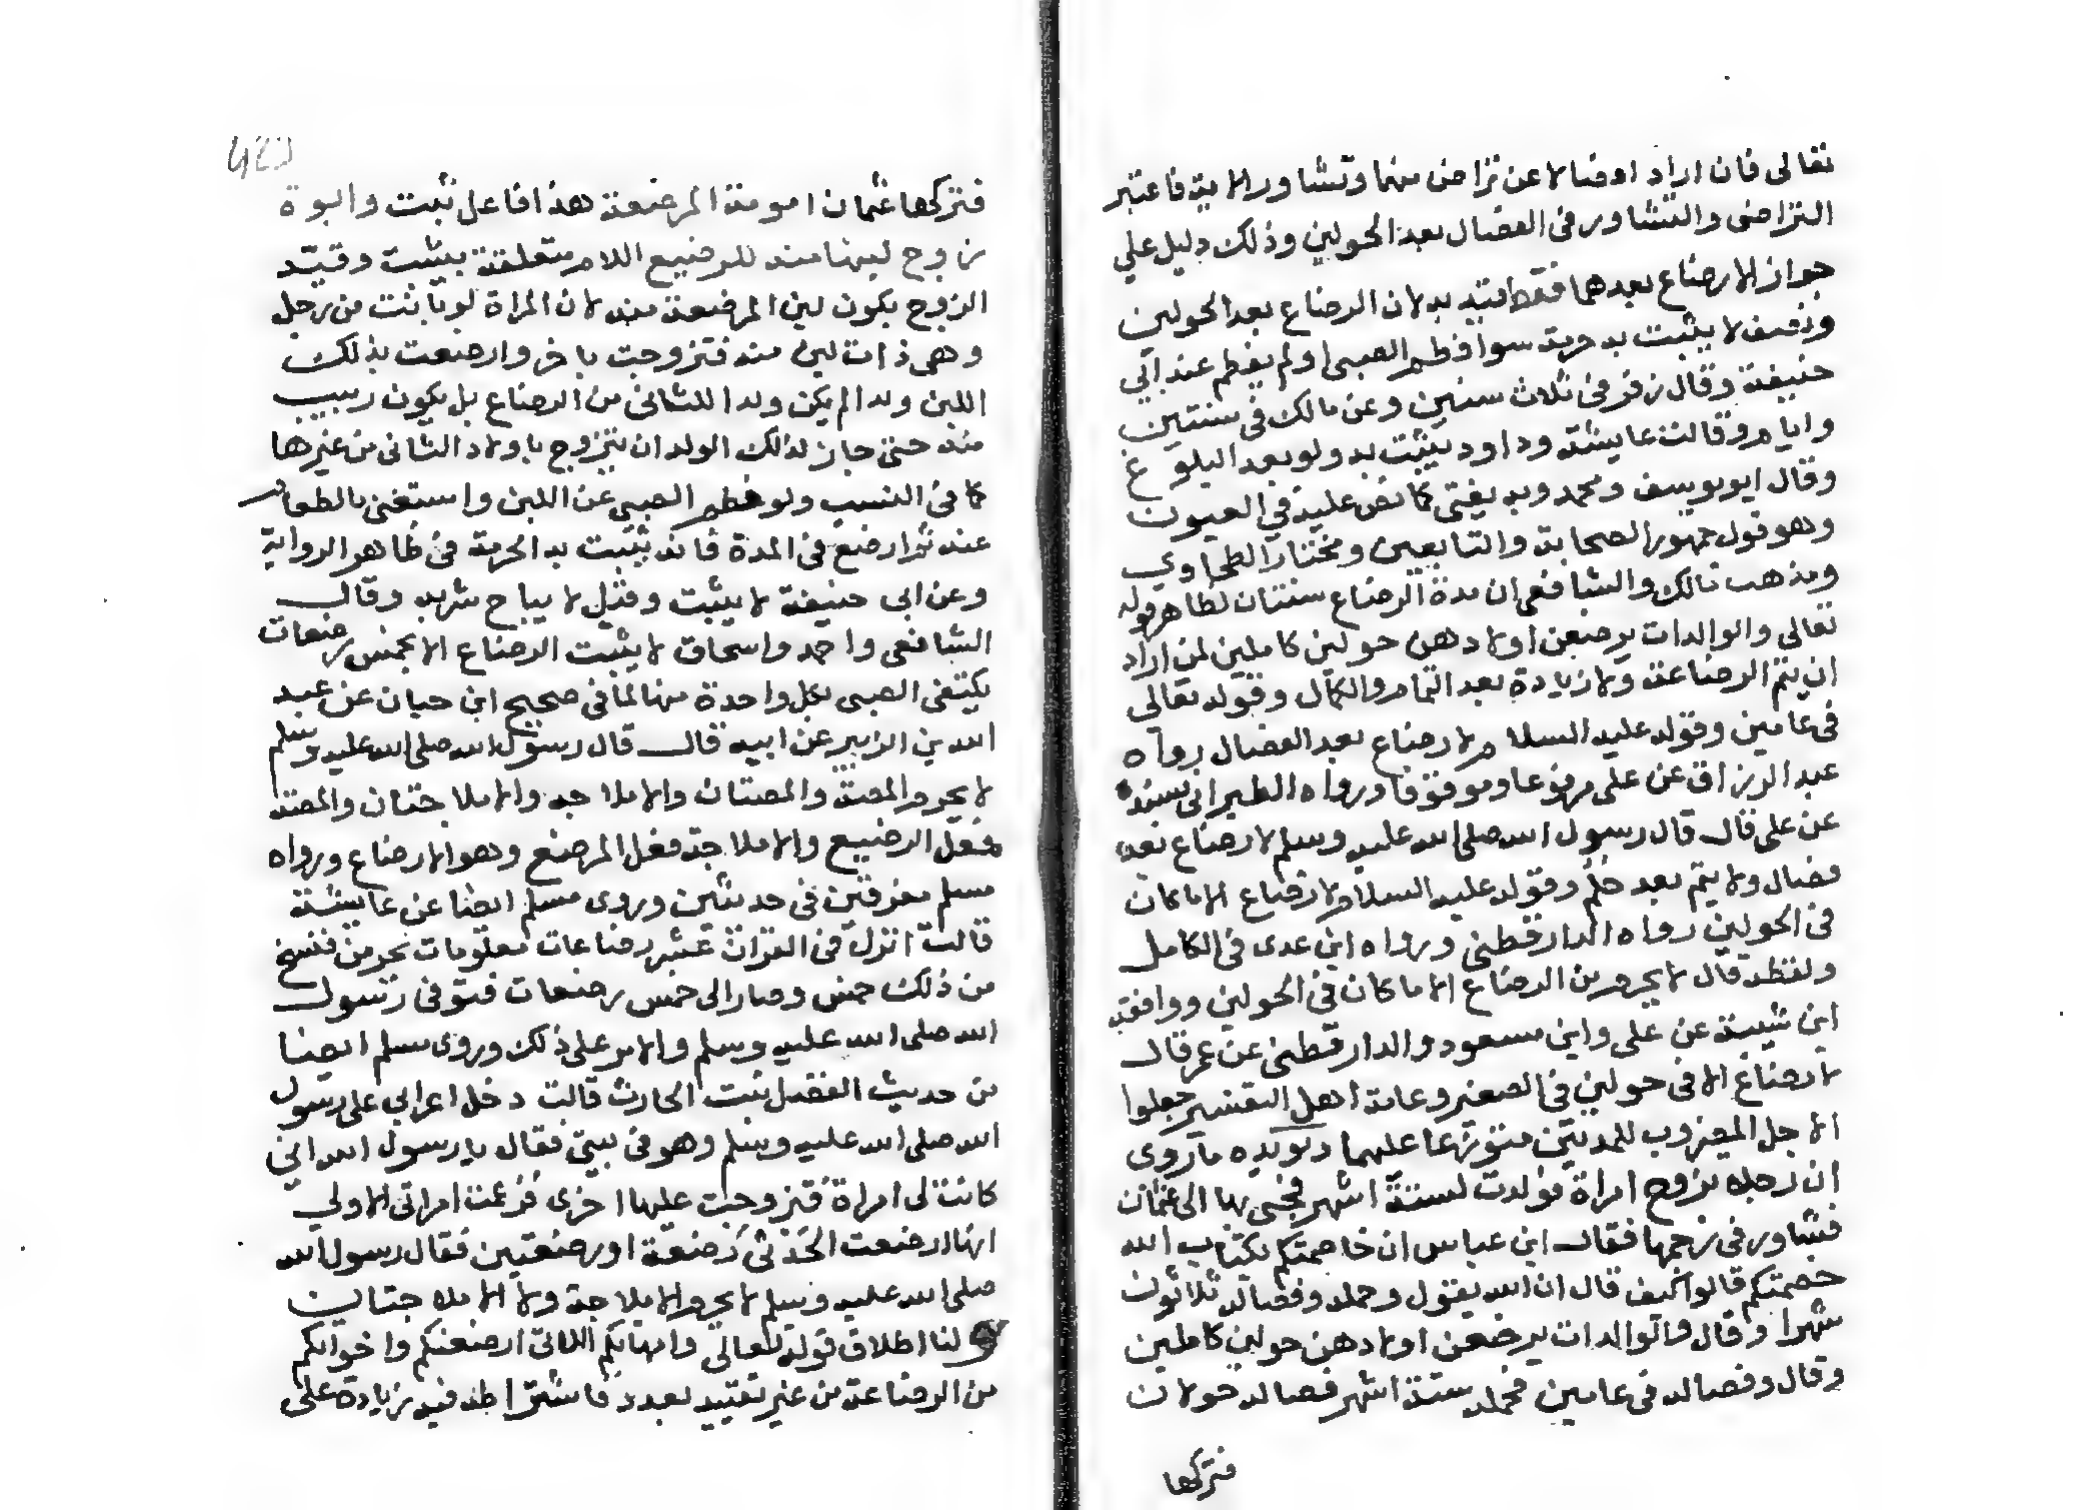 تعالى فان اراد افصالا عن تراض منهما وتشاور الاية فاعتبر
التراضى والتشاور فى الفصال بعد الحولين وذلك دليل علي
جواز الارضاع بعدهما فقط لان الرضاع بعد الحولين
ونصف لا يثبت به حرمة سوا فطم الصبى او لم يفطم عند ابي
حنيفة وقال زفر فى ثلاث سنين وعن مالك فى سنتين
وايام وقالت عايشة وداود يثبت به ولو بعد البلوغ
وقال ابو يوسف ومحمد وبه يفتى كما نص عليه في العيون
وهو قول جمهور الصحابة والتابعين ومختار الطحاوي
ومذهب مالك والشافعى ان مدة الرضاع سنتان لظاهر قوله
تعالى والوالدات يرضعن اولادهن حولين كاملين لمن اراد
ان يتم الرضاعة ولا زيادة بعد التمام والكمال وقوله تعالى
فى عامين وقوله عليه السلام لا رضاع بعد الفصال رواه
عبد الرزاق عن على مرفوعا وموقوفا ورواه الطبرانى بسنده
عن على قال قال رسول الله صلى الله عليه وسلم لا رضاع بعد
فصال ولا يتم بعد حلم وقوله عليه السلام لا رضاع الا ما كان
فى الحولين رواه الدارقطني ورواه ابن عدى فى الكامل
ولفظه قال لا يحرم من الرضاع الا ما كان فى الحولين ووافقه
ابن شيبة عن على وابن مسعود والدارقطنى عن عمر قال
لا رضاع الا فى حولين فى الصغر وعامة اهل التفسير جعلوا
الاجل المضروب للمدتين متوزعا عليهما ويويده ما روى
ان رجلا تزوج امراة فولدت لستة اشهر فجى بها الى عثمان
فشاور فى رجمها فقال ابن عباس ان خاصمتكم بكتاب الله
خصمتكم قالوا كيف قال ان الله يقول وحمله وفصاله ثلاثون
شهرا وقال والوالدات يرضعن اولادهن حولين كاملين
وقال وفصاله فى عامين فحمله ستة اشهر فصاله حولان
فتركها
فتركها عثمان امومة المرضعة هذا فاعل ثبت وابوة
زوج لبنها منه للرضيع اللام متعلقة بيثبت وقيد
الزوج بكون لبن المرضعة منه لان المراة لو بانت من رجل
وهى ذات لبن منه فتزوجت باخر وارضعت بذلك
اللبن ولدا لم يكن ولدا للثانى من الرضاع بل يكون ربيب
منه حتى جاز لذلك الولد ان يتزوج باولاد الثانى من غيرها
كما فى النسب ولو فطم الصبى عن اللبن واستغنى بالطعام
عنه ثم ارضع فى المدة فانه يثبت به الحرمة فى ظاهر الرواية
وعن ابى حنيفة لا يثبت وقيل لا يباح شربه وقال
الشافعى واحمد واسحاق لا يثبت الرضاع الا بخمس رضعات
يكتفى الصبى بكل واحدة منها لما فى صحيح ابن حبان عن عبد
الله بن الزبير عن ابيه قال قال رسول الله صلى الله عليه وسلم
لا يحرم المصة والمصتان والاملاجه والاملاجتان والمصة
فعل الرضيع والاملاجة فعل المرضع وهو الارضاع ورواه
مسلم مفرقتين فى حديثين وروى مسلم ايضا عن عايشة
قالت انزل فى القران عشر رضاعات معلومات يحرمن فنسخ
من ذلك خمس وصار الى خمس رضعات فتوفى رسول
الله صلى الله عليه وسلم والامر على ذلك وروى مسلم ايضا
من حديث الفضل بنت الحارث قالت دخل اعرابي على رسول
الله صلى الله عليه وسلم وهو فى بيتى فقال يا رسول الله اني
كانت لى امراة فتزوجت عليها اخرى فزعمت امراتى الاولي
انها ارضعت الحدثى رضعة او رضعتين فقال رسول الله
صلى الله عليه وسلم لا يحرم الاملاجة ولا الاملاجتان
ولنا اطلاق قوله تعالى وامهاتكم اللاتى ارضعنكم واخواتكم
من الرضاعة من غير تقييد بعدد فاشتراطه فيه زيادة على